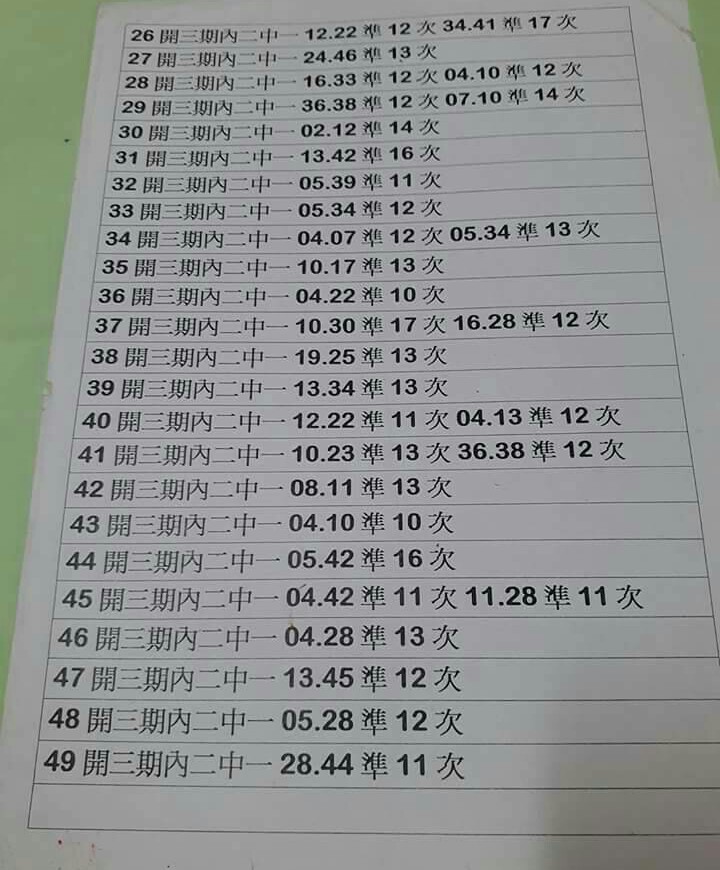 26 開三期內二中一 12.22 準 12 次 34.41 準 17 次
27 開三期內二中一 24.46 準 13 次
28 開三期內二中一 16.33 準 12 次 04.10 準 12 次
29 開三期內二中一 36.38 準 12 次 07.10 準 14 次
30 開三期內二中一 02.12 準 14 次
31 開三期內二中一 13.42 準 16 次
32 開三期內二中一 05.39 準 11 次
33 開三期內二中一 05.34 準 12 次
34 開三期內二中一 04.07 準 12 次 05.34 準 13 次
35 開三期內二中一 10.17 準 13 次
36 開三期內二中一 04.22 準 10 次
37 開三期內二中一 10.30 準 17 次 16.28 準 12 次
38 開三期內二中一 19.25 準 13 次
39 開三期內二中一 13.34 準 13 次
40 開三期內二中一 12.22 準 11 次 04.13 準 12 次
41 開三期內二中一 10.23 準 13 次 36.38 準 12 次
42 開三期內二中一 08.11 準 13 次
43 開三期內二中一 04.10 準 10 次
44 開三期內二中一 05.42 準 16 次
45 開三期內二中一 04.42 準 11 次 11.28 準 11 次
46 開三期內二中一 04.28 準 13 次
47 開三期內二中一 13.45 準 12 次
48 開三期內二中一 05.28 準 12 次
49 開三期內二中一 28.44 準 11 次